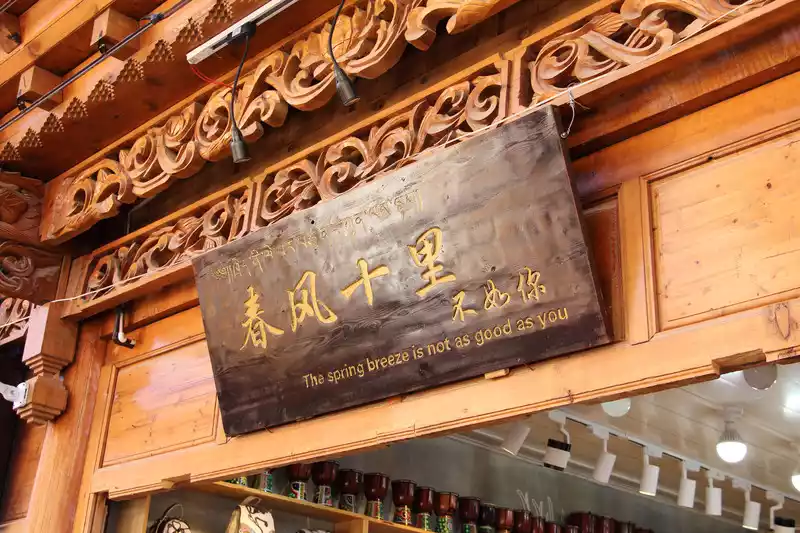 春风十里
不如你
The spring breeze is not as good as you